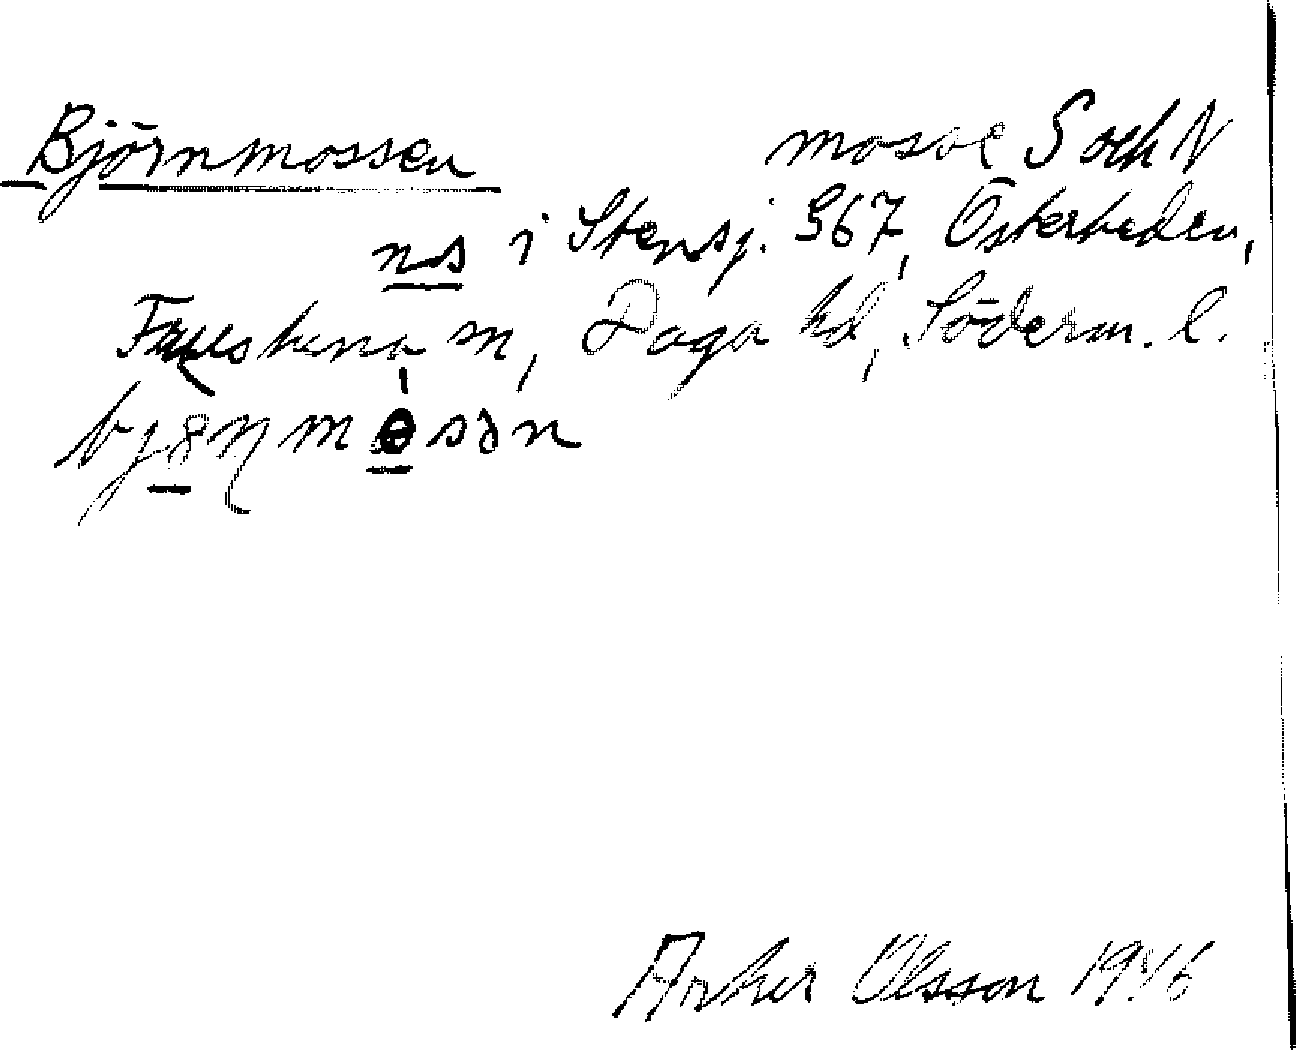 Björnmossen mosse S och N
ns i Stensj. 967, Österheden,
Frustuna sn, Daga hd, Söderm. l.
Anker Olsson 1946